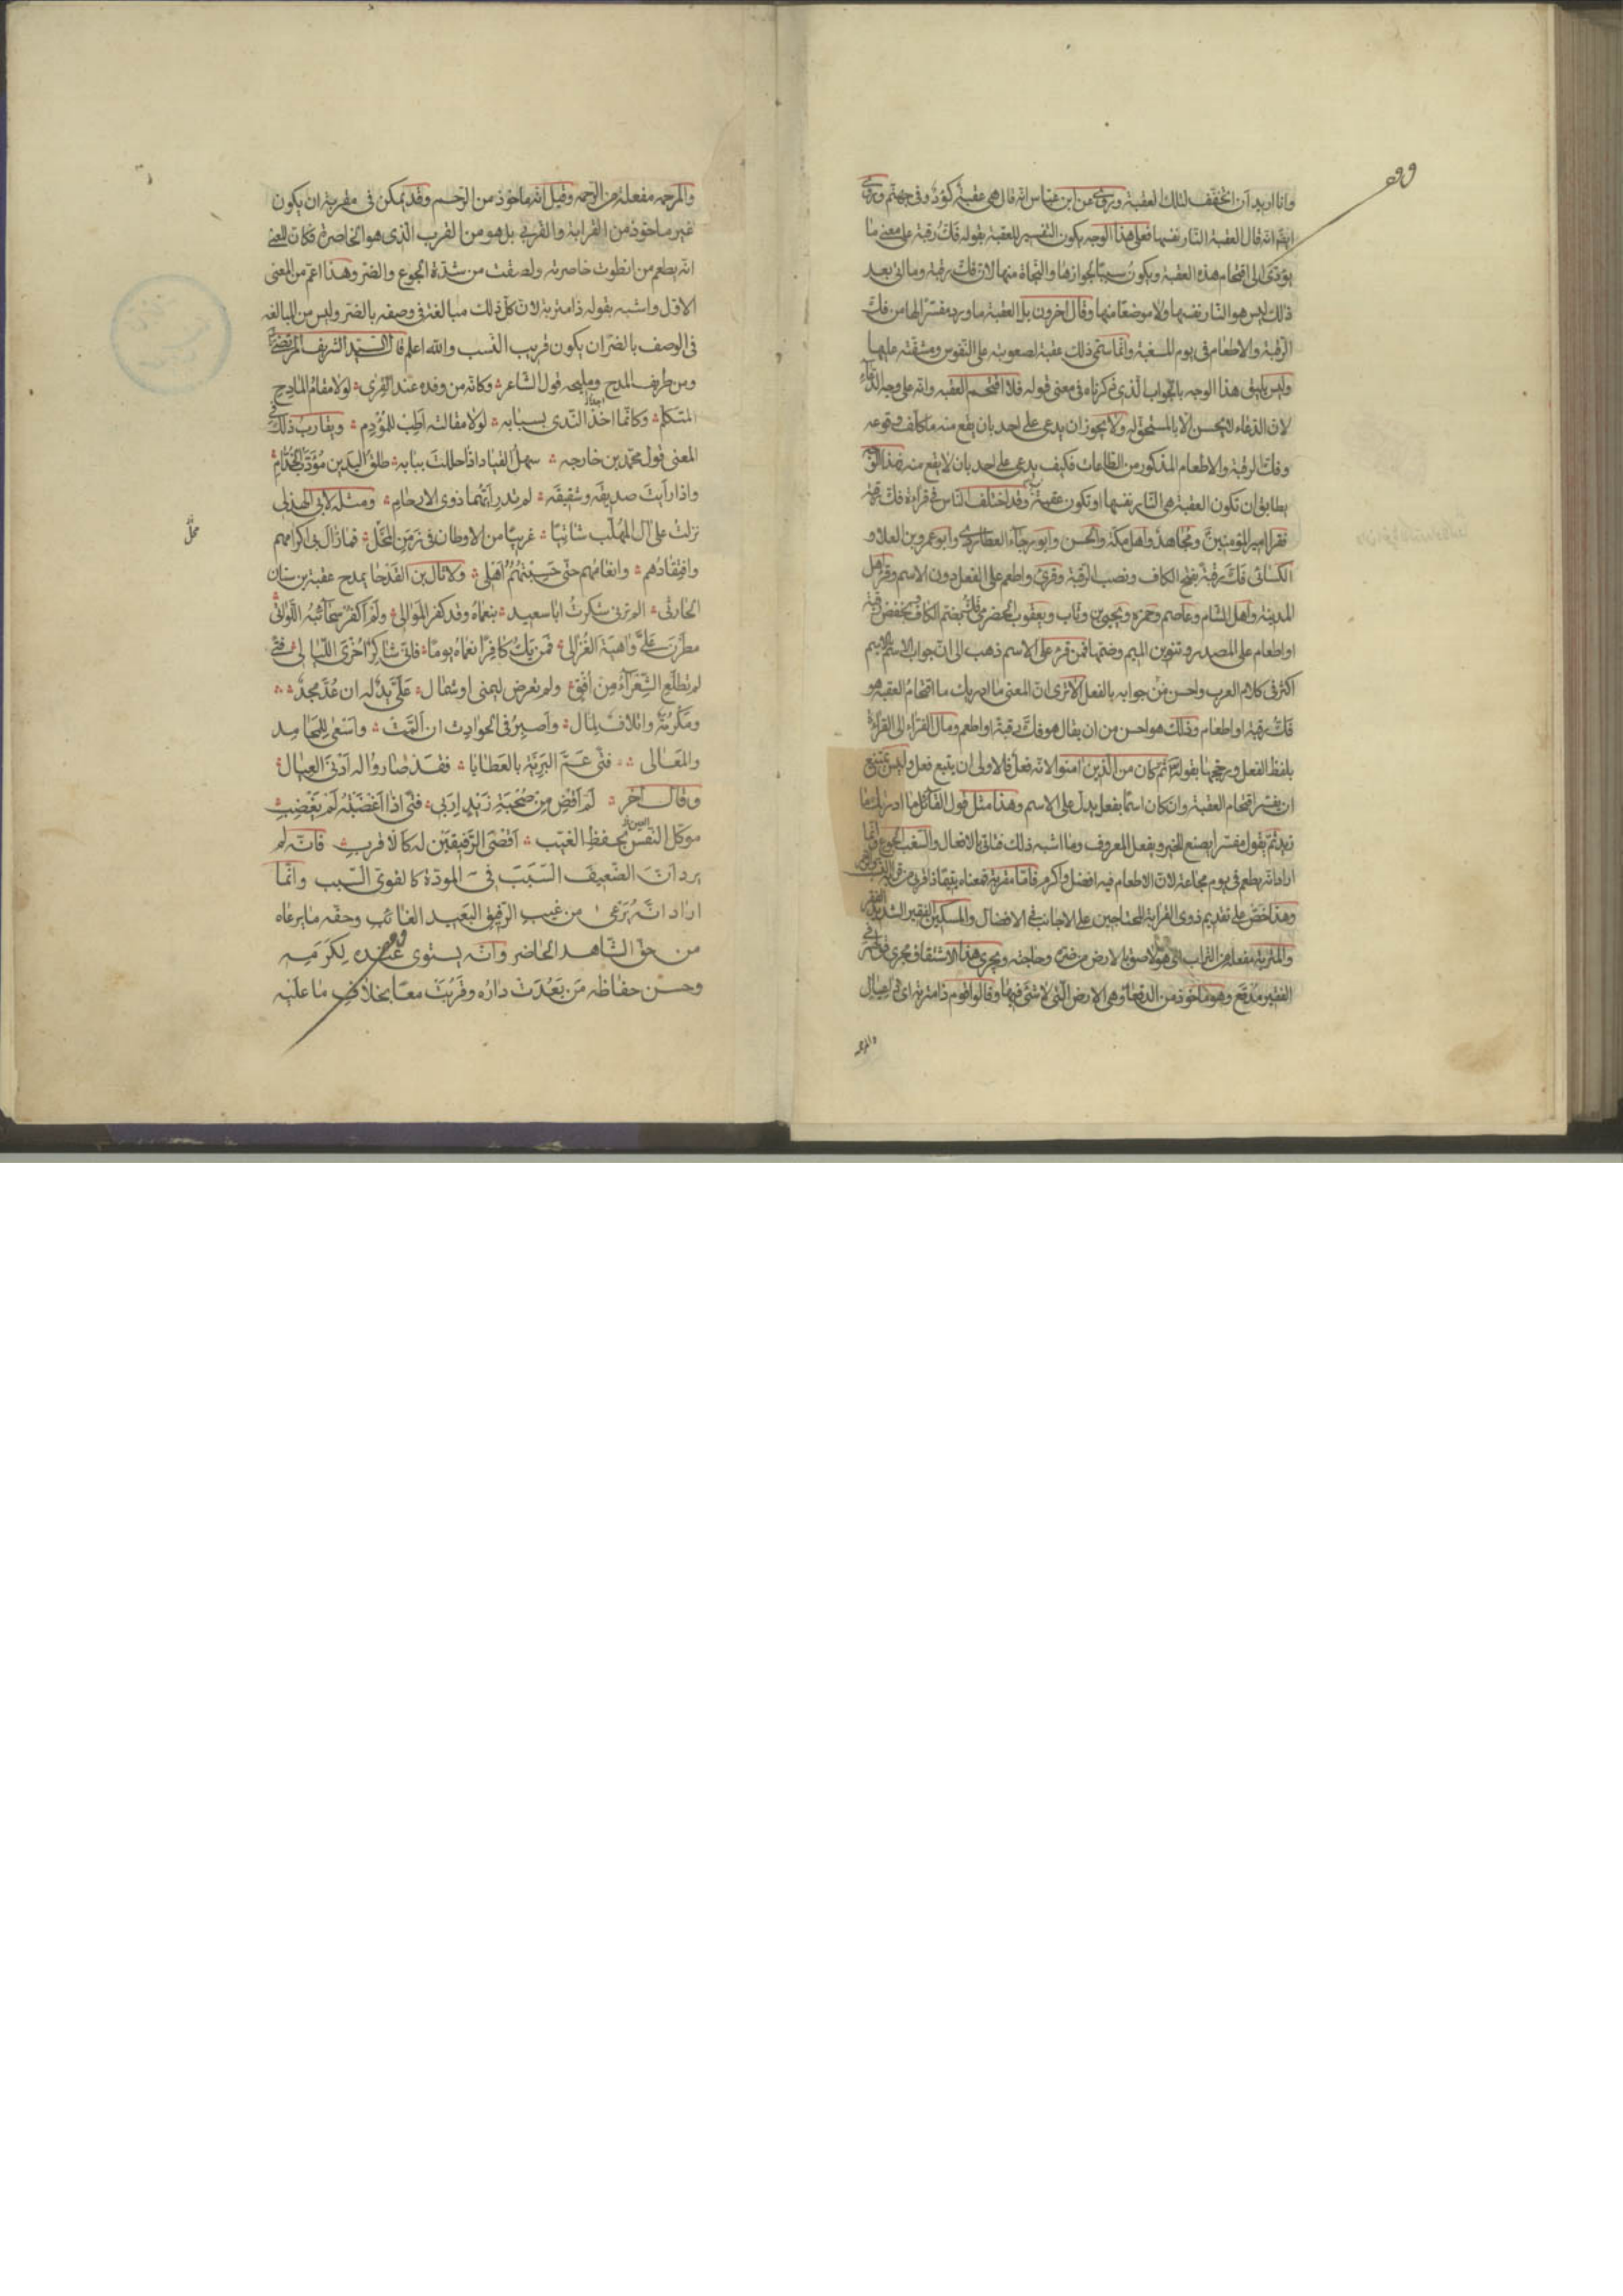 وانا اريد ان اتخفف لتلك العقبة وروى عن ابن عباس انه قال هى عقبة كؤد فى جهنم وروى
ايضا انه قال العقبة النار نفسها فعلى هذا الوجه يكون التفسير للعقبة بقوله فك رقبة على معنى ما
يؤدى الى اقتحام هذه العقبة ويكون سببا لجوازها والنجاة منها لان فك رقبة وما اتى بعد
ذلك ليس هو النار نفسها ولا موضعا منها وقال اخرون بل العقبة ما ورد مفسرا لها من فك
الرقبة والاطعام فى يوم المسغبة وانما سمى ذلك عقبة لصعوبته على النفوس ومشقته عليها
وليس يليق هذا الوجه بالجواب الذى ذكرناه فى معنى قوله فلا اقتحم العقبة وانه على وجه الدعاء
لان الدعاء لا يحسن الا بالمستحق له ولا يجوز ان يدعى على احد بان يقع منه ما كلف وقوعه
وفك الرقبة والاطعام المذكور من الطاعات فكيف يدعى على احد بان لا يقع منه فهذا الوجه
يطابق ان تكون العقبة هى النار نفسها او تكون عقبة فيها وقد اختلف الناس فى قراءة فك رقبة
فقرا امير المؤمنين ومجاهد واهل مكة والحسن وابو رجاء العطاردى وابو عمرو بن العلاء و
الكسائى فك رقبة بفتح الكاف ونصب الرقبة وقرئ واطعم على الفعل دون الاسم وقرا اهل
المدينة واهل الشام وعاصم وحمزه ويحيى بن وثاب ويعقوب الحضرمى فك بضم الكاف وبخفض رقبة
او اطعام على المصدر وتنوين الميم وضمها فمن قرء على الاسم ذهب الى ان جواب الاسم بالاسم
اكثر فى كلام العرب واحسن من جوابه بالفعل الا ترى ان المعنى ما ادريك ما اقتحام العقبة هو
فك رقبة او اطعام وذلك هو احسن من ان يقال هو فك رقبة او اطعم ومال الفراء الى القراءة
بلفظ الفعل ورجحها بقوله ثم كان من الذين امنوا لانه فعل فالاولى ان يتبع فعل وليس يمتنع
ان يفسر اقتحام العقبة وان كان اسما بفعل يدل على الاسم وهذا مثل قول القائل ما ادريك ما
زيد ثم يقول مفسرا يصنع الخير ويفعل المعروف وما اشبه ذلك فتاتى بالافعال والسغب الجوع وانما
اراد انه يطعم فى يوم مجاعة لان الاطعام فيه افضل واكرم فاما مقربة فمعناه يتيما ذا قربى من
وهذا حض على تقديم ذوى القرابة المحتاجين على الاجانب فى الافضال والمسكين الفقير الشديد الفقر
والمتربة مفعلة من التراب اى هو لاصق بالارض من ضره وحاجته ويجرى هذا الاشتقاق مجرى قولهم فى
الفقير مدقع وهو ماخوذ من الدقعاء وهى الارض التى لا شئ فيها وقال قوم ذا متربة اى ذا عيال
والمرحمه
والمرحمه مفعلة من الرحمه وقيل انه ماخوذ من الرحم وقد يمكن فى مقربة ان يكون
غير ماخوذ من القرابة والقربى بل هو من القرب الذى هو الخاصرة فكان المعنى
انه يطعم من انطوت خاصرته ولصقت من شدة الجوع والضر وهذا اعم من المعنى
الاول واشبه بقوله ذا متربة لان كل ذلك مبالغة فى وصفه بالضر وليس من المبالغه
فى الوصف بالضر ان يكون قريب النسب والله اعلم قال السيد الشريف المرتضى
ومن طريف المدح ومليحه قول الشاعر وكانه من وفده عند القرى لولا مقام المادح
المتكلم وكانما احد الندى ببابه لولا مقالته اطب للمؤدم ويقارب ذلك فى
المعنى قول محمد بن خارجه سهل الفناء اذا حللت ببابه طلق اليدين مؤدب الخدام
واذا رايت صديقه وشقيقه لم تدر ايهما ذوى الارحام ومثله لابى الهذلى
نزلت على آل المهلب شاتيا غريبا من الاوطان فى زمن المحل فما زال بى اكرامهم
محل
وافتقادهم وانعامهم حتى حسبتهم اهلى ولاثال بن القدحا يمدح عقبة بن سنان
الحارثى الم ترنى شكرت ابا سعيد بنعماه وقد كفر الموالى ولم اكفر سحائبه اللواتى
مطرن على واهبة الغزالى فمن يك كافرا نعماه يوما فانى شاكر اخرى الليالى فتى
لم تطلع الشعراء من افق ولم تعرض ليمنى او شمال على ند له ان عد مجد
ومكرمة واتلاف لمال واصبر فى الحوادث ان المت واسعى للمحامد
والمعالى فتى عم البرية بالعطايا فقد صاروا له ادنى العيال
وقال اخر لم اقض من صحبة زيد اربى فتى اذا اغضبته لم يغضب
موكل النفس بحفظ الغيب اقصى الرفيقين له كالاقرب فانه لم
يرد ان الضعيف السبب فى المودة كالقوى السبب وانما
اراد انه يرعى من غيب الرفيق البعيد الغائب وحقه ما يرعاه
من حق الشاهد الحاضر وانه يستوى عنده لكرمه
وحسن حفاظه من بعدت داره وقربت معا بخلاف ما عليه